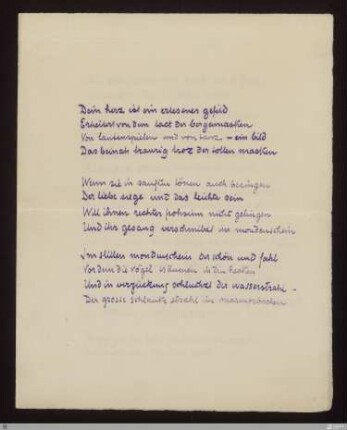 Dein herz ist ein erlesenes gefild
Erheitert von dem takt der bergamasken
Von lautenspielen und von tanz – ein bild
Das beinah traurig troz der tollen masken
Wenn sie in sanften tönen auch besingen
Der liebe siege und das leichte sein
Will ihnen rechter frohsinn nicht gelingen
Und ihr gesang verschmilzt im mondenschein
Im stillen mondenschein der schön und fahl
Vor dem die vögel träumen in den
Und in verzückung schluchzt der wasserstrahl –
Der grosse schlanke strahl im